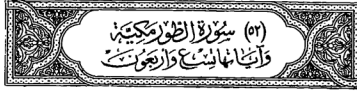 (٥٢) سُورَةُ الطُّورِ مَكِّيَّةٌ
وَآيَاتُهَا تِسْعٌ وَأَرْبَعُونَ